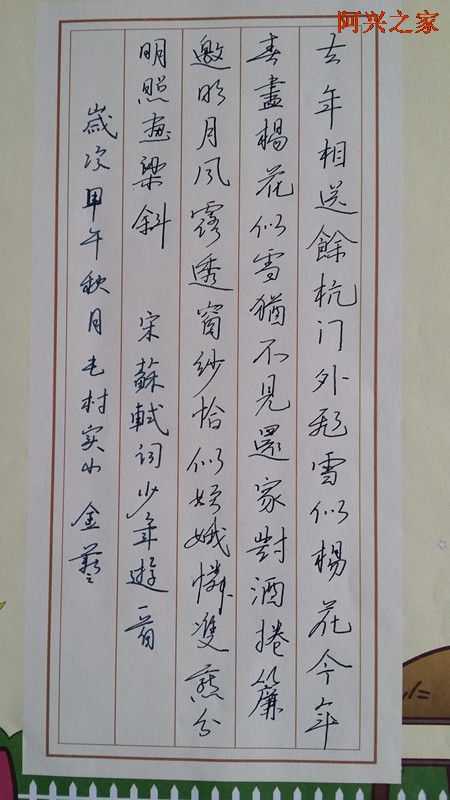 阿兴之家
去年相送餘杭门外飛雪似楊花今年
春盡楊花似雪猶不見還家對酒捲簾
邀明月风露透窗纱恰似姮娥憐雙燕分
明照画梁斜 宋蘇軾词少年遊一首
歲次甲午秋月毛村实小 金